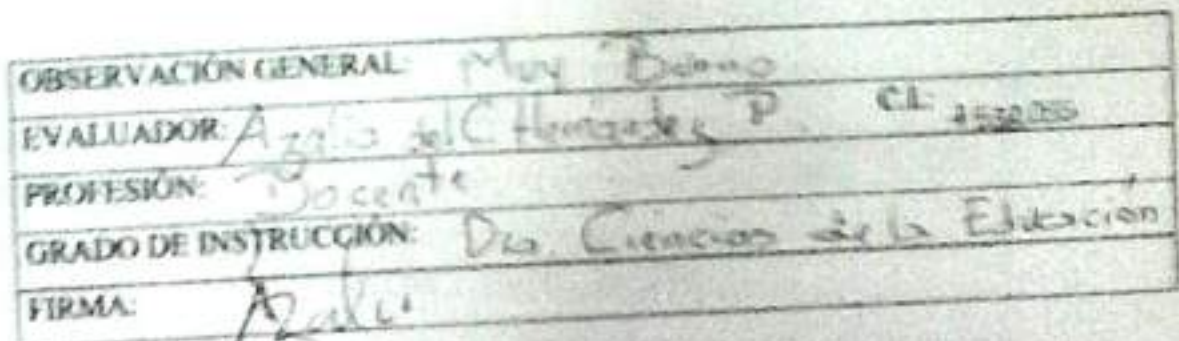 OBSERVACIÓN GENERAL: Muy Bueno
EVALUADOR: Azalia del C Hernández P. C.I.
PROFESIÓN: Docente
GRADO DE INSTRUCCIÓN: Dra. Ciencias de la Educación
FIRMA: